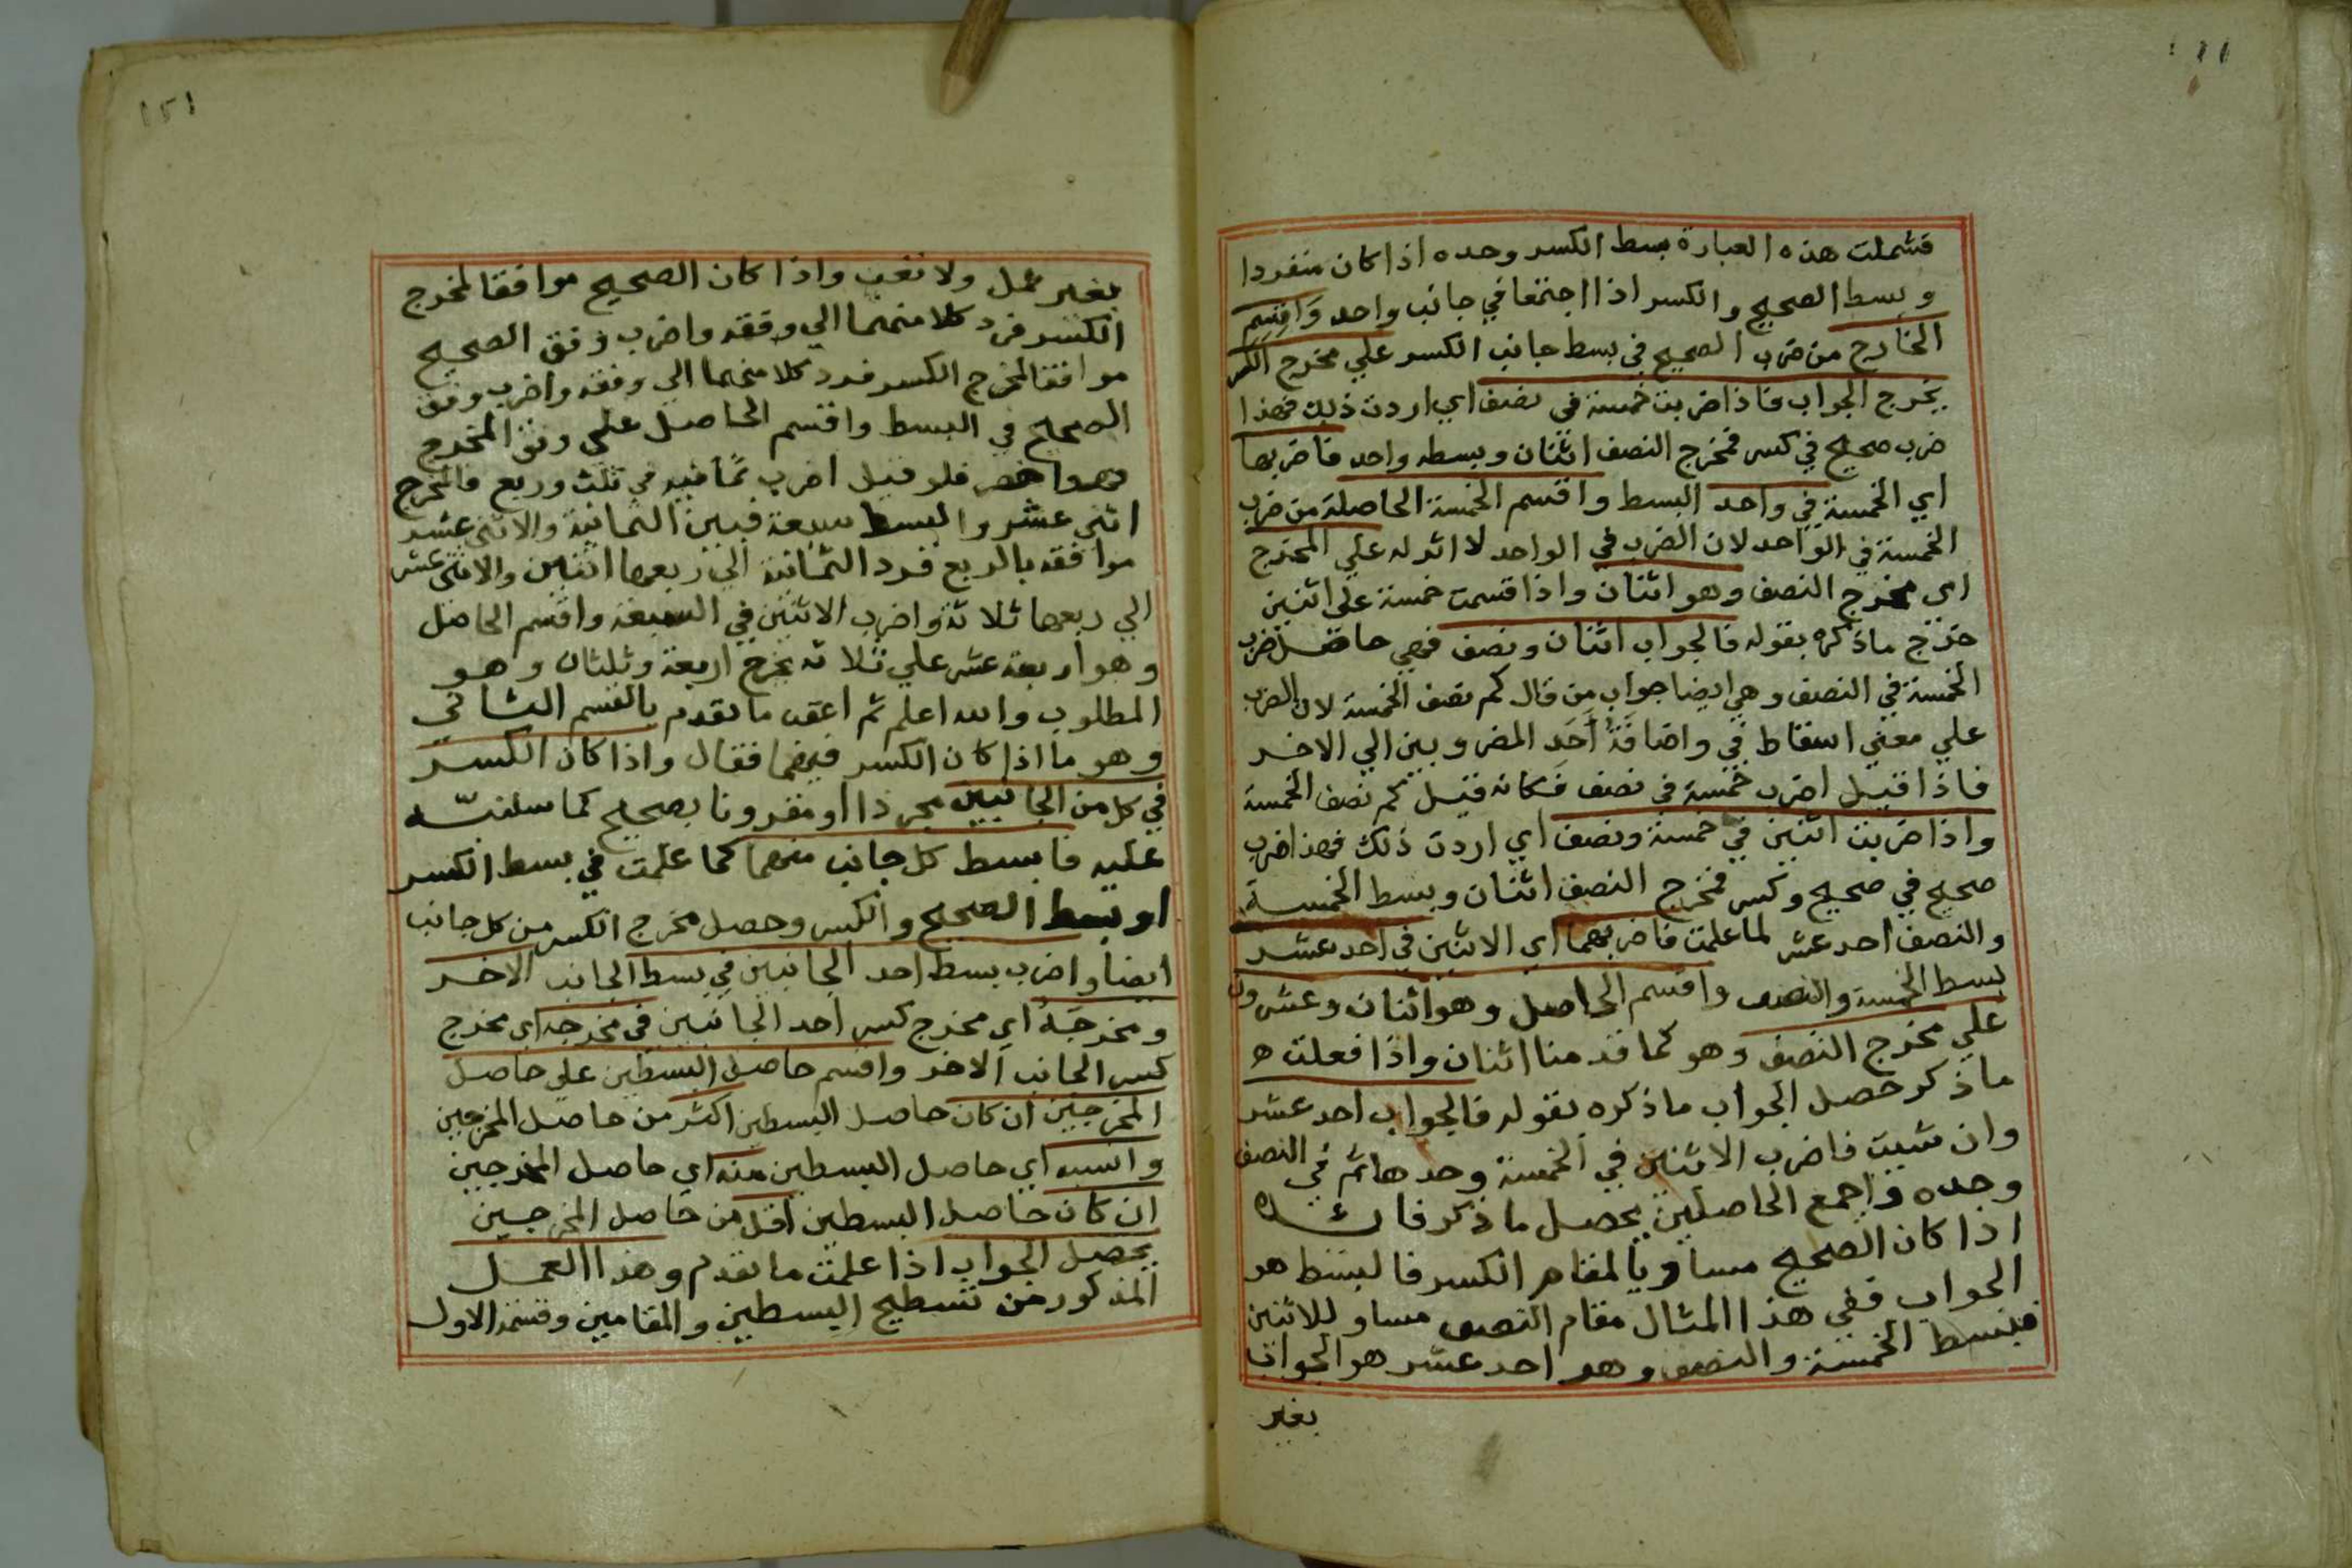 فشملت هذه العبارة بسط الكسر وحده اذا كان منفردا
وبسط الصحيح والكسر اذا اجتمعا في جانب واحد وَاقسِم
الخارج من ضرب الصحيح في بسط جانب الكسر علي مخرج الكسر
يخرج الجواب فاذا ضربت خمسة في نصف اي اردت ذلك فهذا
ضرب صحيح في كسر فمخرج النصف اثنان وبسطه واحد فاضربها
اي الخمسة في واحد البسط واقسم الخمسة الحاصلة من ضرب
الخمسة في الواحد لان الضرب في الواحد لا اثر له علي المخرج
اي مخرج النصف وهو اثنان واذا قسمت خمسة على اثنين
خرج ما ذكره بقوله فالجواب اثنان ونصف فهي حاصل ضرب
الخمسة في النصف وهي ايضا جواب من قال كم نصف الخمسة لان الضرب
علي معني اسقاط في واضافة أحَد المضروبين الي الاخر
فاذا قيل اضرب خمسة في نصف فكانه قيل كم نصف الخمسة
واذا ضربت اثنين في خمسة ونصف اي اردت ذلك فهذا ضرب
صحيح في صحيح وكسر فمخرج النصف اثنان وبسط الخمسة
والنصف احد عشر لما علمت فاضربهما اي الاثنين في احد عشر
بسط الخمسة والنصف واقسم الحاصل وهو اثنان وعشرون
علي مخرج النصف وهو كما قدمنا اثنان واذا فعلت ه
ما ذكر حصل الجواب ما ذكره بقوله فالجواب احد عشر
وان شيت فاضرب الاثنين في الخمسة وحدها ثم في النصف
وحده واجمع الحاصلين يحصل ما ذكر فائدة
اذا كان الصحيح مساويا لمقام الكسر فالبسط هو
الجواب ففي هذا المثال مقام النصف مساو للاثنين
فبسط الخمسة والنصف وهو احد عشر هو الجواب
بغير
١٥١
بغير عمل ولا تعب واذا كان الصحيح موافقا لمخرج
الكسر فرد كلا منهما الي وفقه واضرب وفق الصحيح
موافقا لمخرج الكسر فرد كلا منهما الي وفقه واضرب وفق
الصحيح في البسط واقسم الحاصل علي وفق المخرج
وهو اخصر فلو قيل اضرب ثمانيه في ثلث وربع فالمخرج
اثني عشر والبسط سبعة فبين الثمانية والاثني عشر
موافقه بالربع فرد الثمانية الي ربعها اثنين والاثني عشر
الي ربعها ثلاثة واضرب الاثنين في السبعة واقسم الحاصل
وهو اربعة عشر علي ثلاثه يخرج اربعة وثلثان وهو
المطلوب والله اعلم ثم اعقب ما تقدم بالقسم الثاني
وهو ما اذا كان الكسر فيهما فقال واذا كان الكسر
في كل من الجانبين مجردا او مقرونا بصحيح كما سلنبه
عليه فابسط كل جانب منهما كما علمت في بسط الكسر
او بسط الصحيح والكسر وحصل مخرج الكسر من كل جانب
ايضا واضرب بسط احد الجانبين في بسط الجانب الاخر
ومخرجَهُ اي مخرج كسر احد الجانبين في مخرجه اي مخرج
كسر الجانب الاخر واقسم حاصل البسطين علي حاصل
المخرجين ان كان حاصل البسطين اكثر من حاصل المخرجين
وانسبه اي حاصل البسطين منه اي حاصل المخرجين
ان كان حاصل البسطين اقل من حاصل المخرجين
يحصل الجواب اذا علمت ما تقدم وهذا العمل
المذكور من تسطيح البسطين والمقامين وقسمة الاول